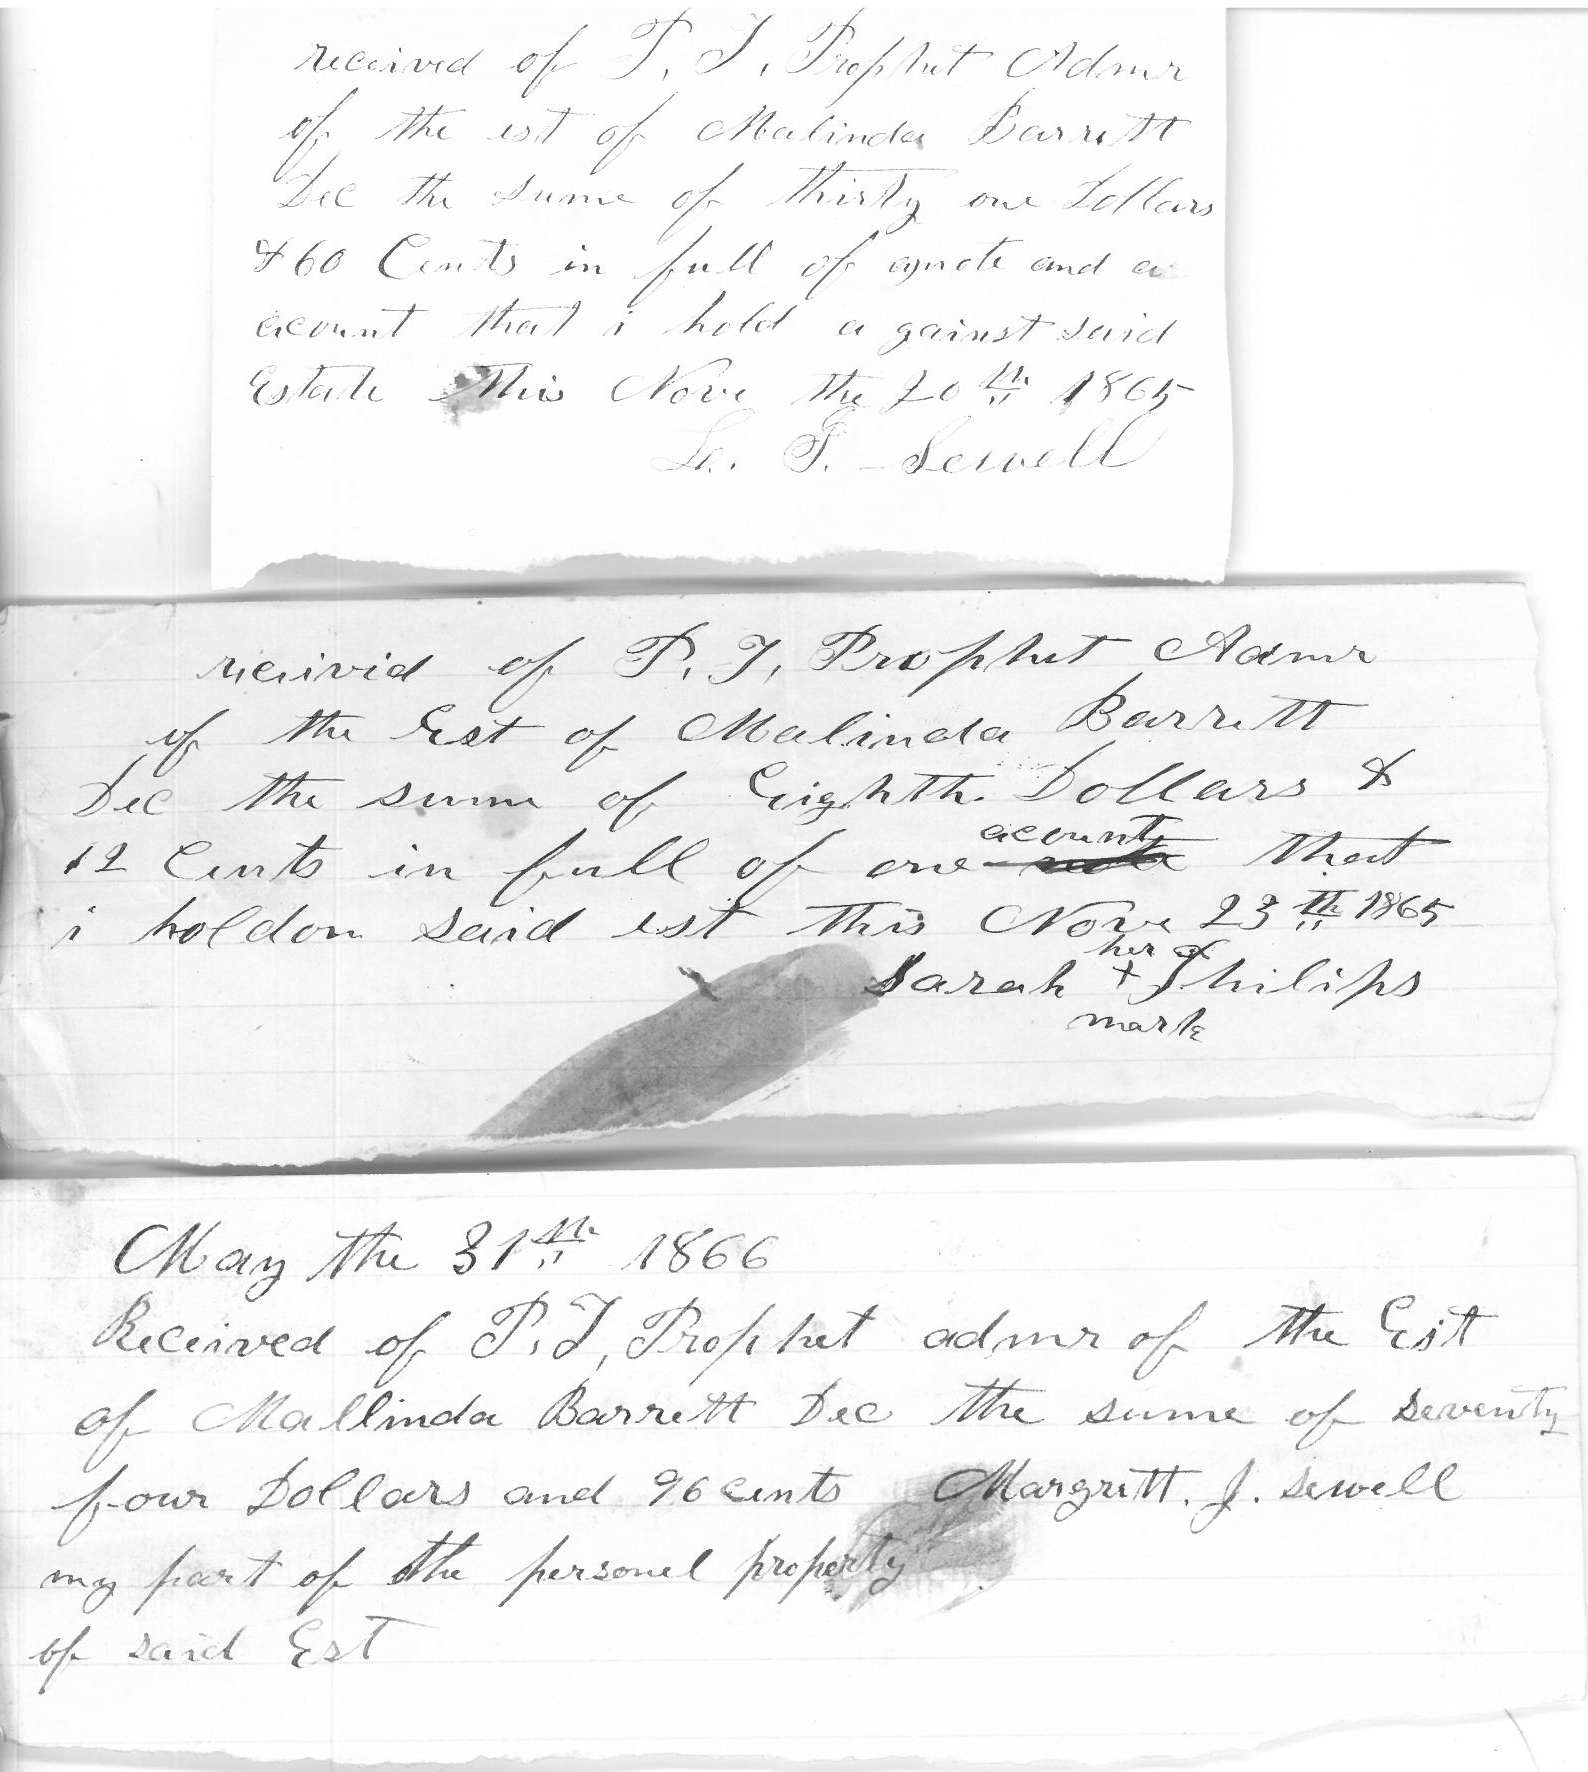 received of P. T. Prophet Admr
of the est of Malinda Barrett
Dec the sume of thirty one Dollars
& 60 Cents in full of anote and a
acount that i hold a gainst said
Estate this Nove the 20th 1865
P. Sewell
receivid of P. T. Prophet Admr
of the Est of Malinda Barrett
Dec the sum of Eighth Dollars &
12 Cents in full of one acount that
i holdon said est this Nove 23th 1865
her
Sarah + Philips
mark
May the 31th 1866
Received of P. T. Prophet admr of the Est
of Mallinda Barrett Dec the sume of seventy
four Dollars and 96 cents Margrett. J. Sewell
my part of the personel property
of said Est